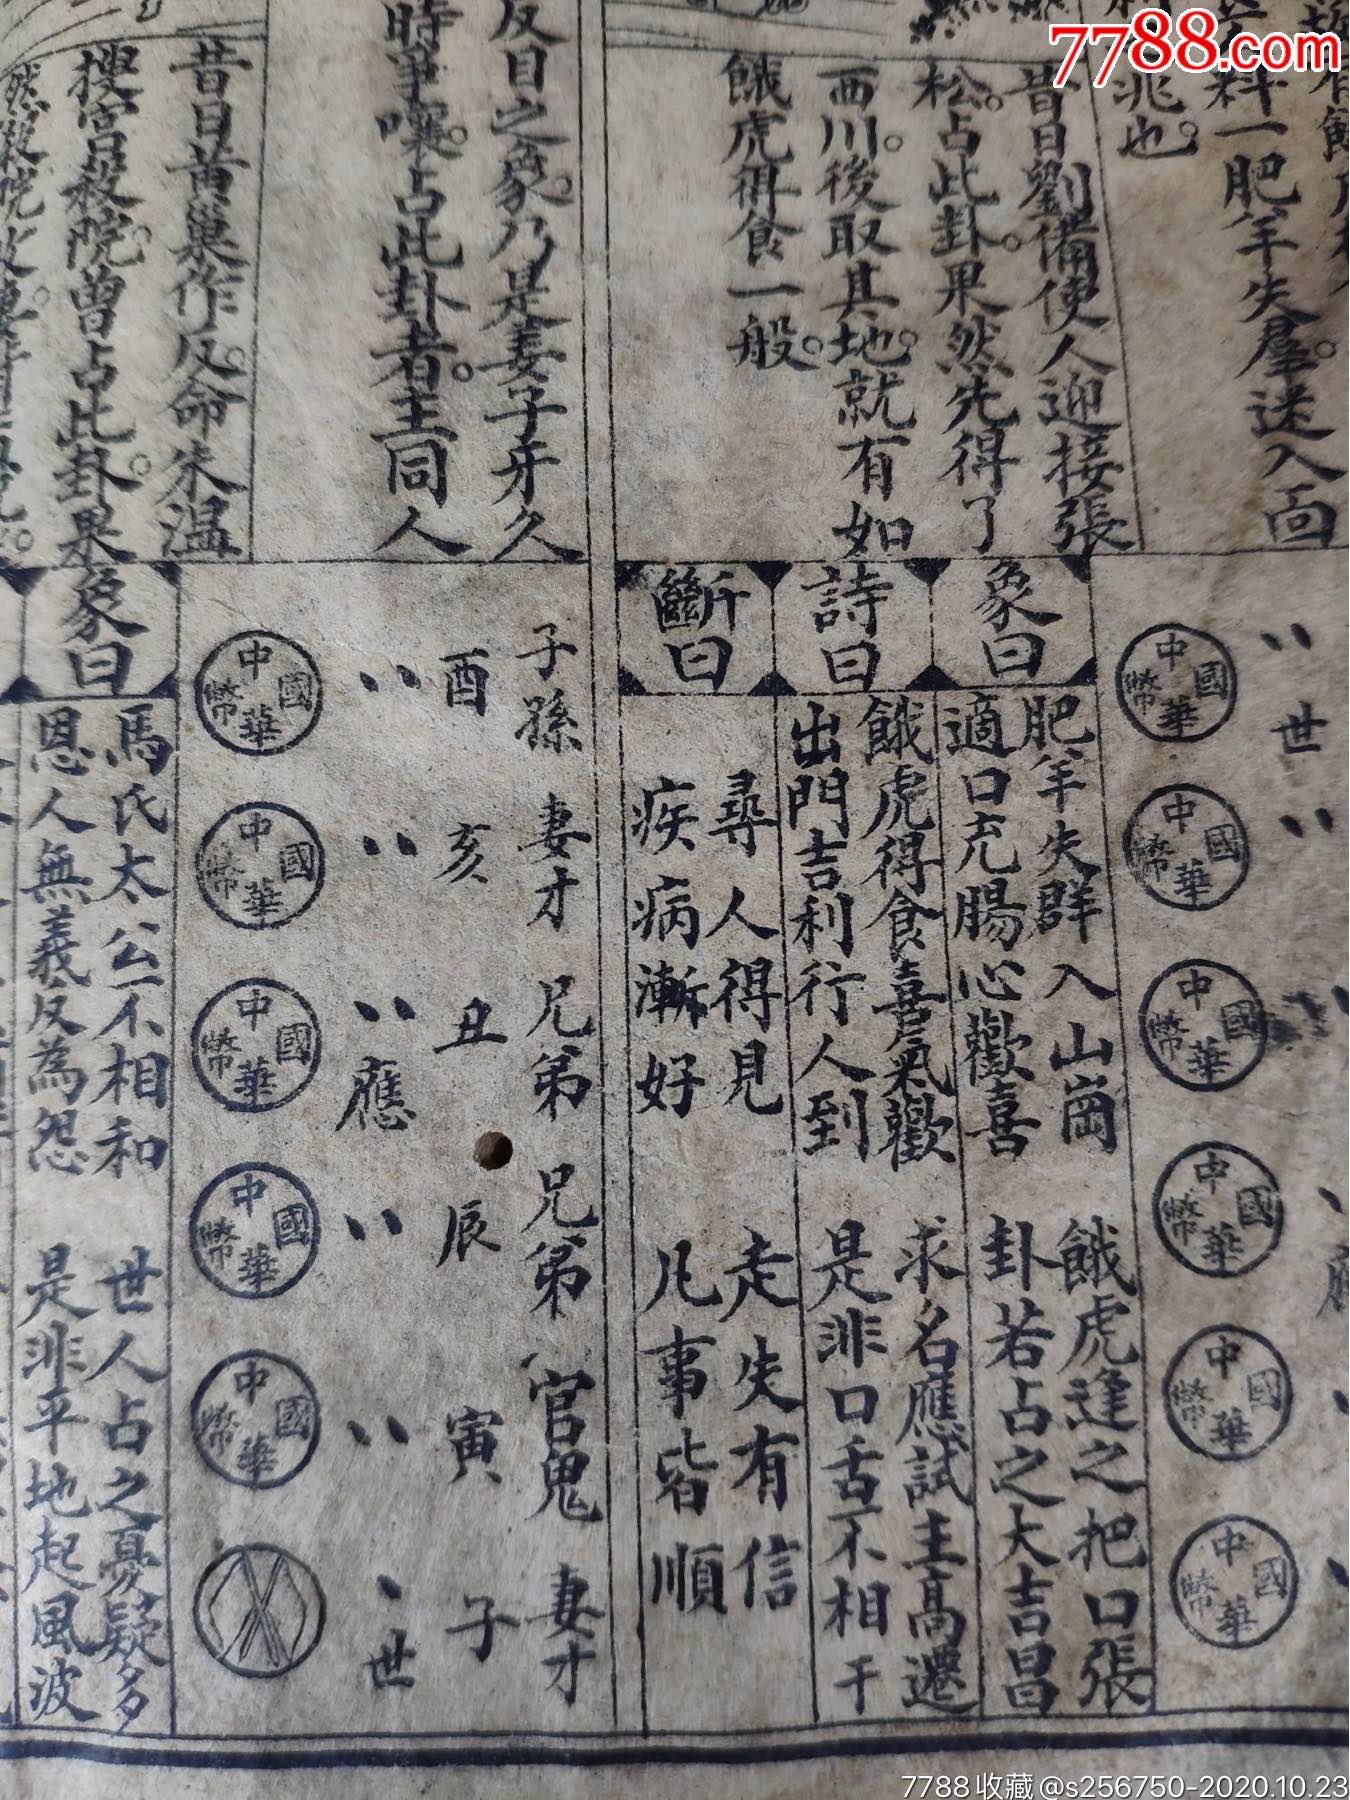 7788.com
科一肥羊失群。迷入面
兆也。
昔日劉備使人迎接張
松。占此卦。果然先得了
西川。後取其地。就有如
餓虎得食一般。
世
應
象曰
肥羊失群入山崗 餓虎逢之把口張
適口充腸心歡喜 卦若占之大吉昌
詩曰
餓虎得食喜氣歡 求名應試主高遷
出門吉利行人到 是非口舌不相干
斷曰
尋人得見 走失有信
疾病漸好 凡事皆順
中華國幣
中華國幣
中華國幣
中華國幣
中華國幣
中華國幣
反目之象。乃是姜子牙久
時爭嚷。占此卦者。主同人
子孫 妻才 兄弟 兄弟 官鬼 妻才
酉 亥 丑 辰 寅 子
應 世
中華國幣
中華國幣
中華國幣
中華國幣
中華國幣
昔日黃巢作反。命朱溫
搜宮殺院。曾占此卦。果
象曰
馬氏太公不相和 世人占之憂疑多
恩人無義反為怨 是非平地起風波
7788收藏@s256750-2020.10.23